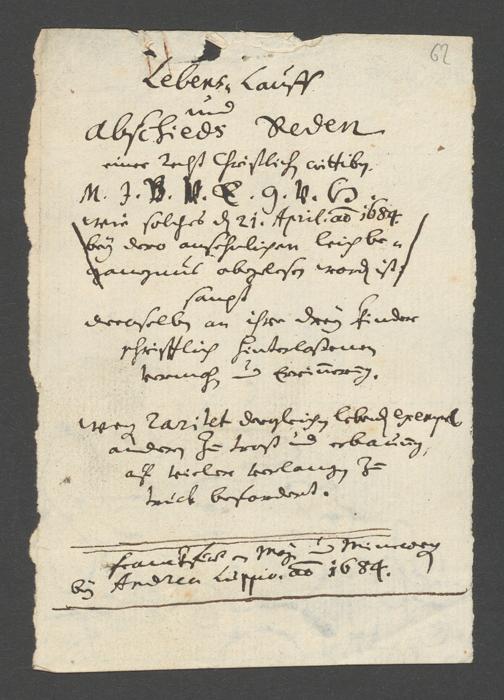 62
Lebens-Lauff
und
Abschieds Reden
einer recht Christlich wittiben.
M. J. B. V. E. G. V. H.
wie solches d. 21. April. ao 1684
bey dero ansehnlichen leichbe-
gangnus abgelesen worden ist
sampt
deroselben an ihre drey kinder
schrifftlich hinterlassenen
vermahn und erinnerung.
wegen raritet dergleichen lebend exempel
andern zu trost und erbauung,
auf vieler verlangen zu
truck befordert.
franckfurt am Mayn
bey Andrea Luppio. ao 1684.